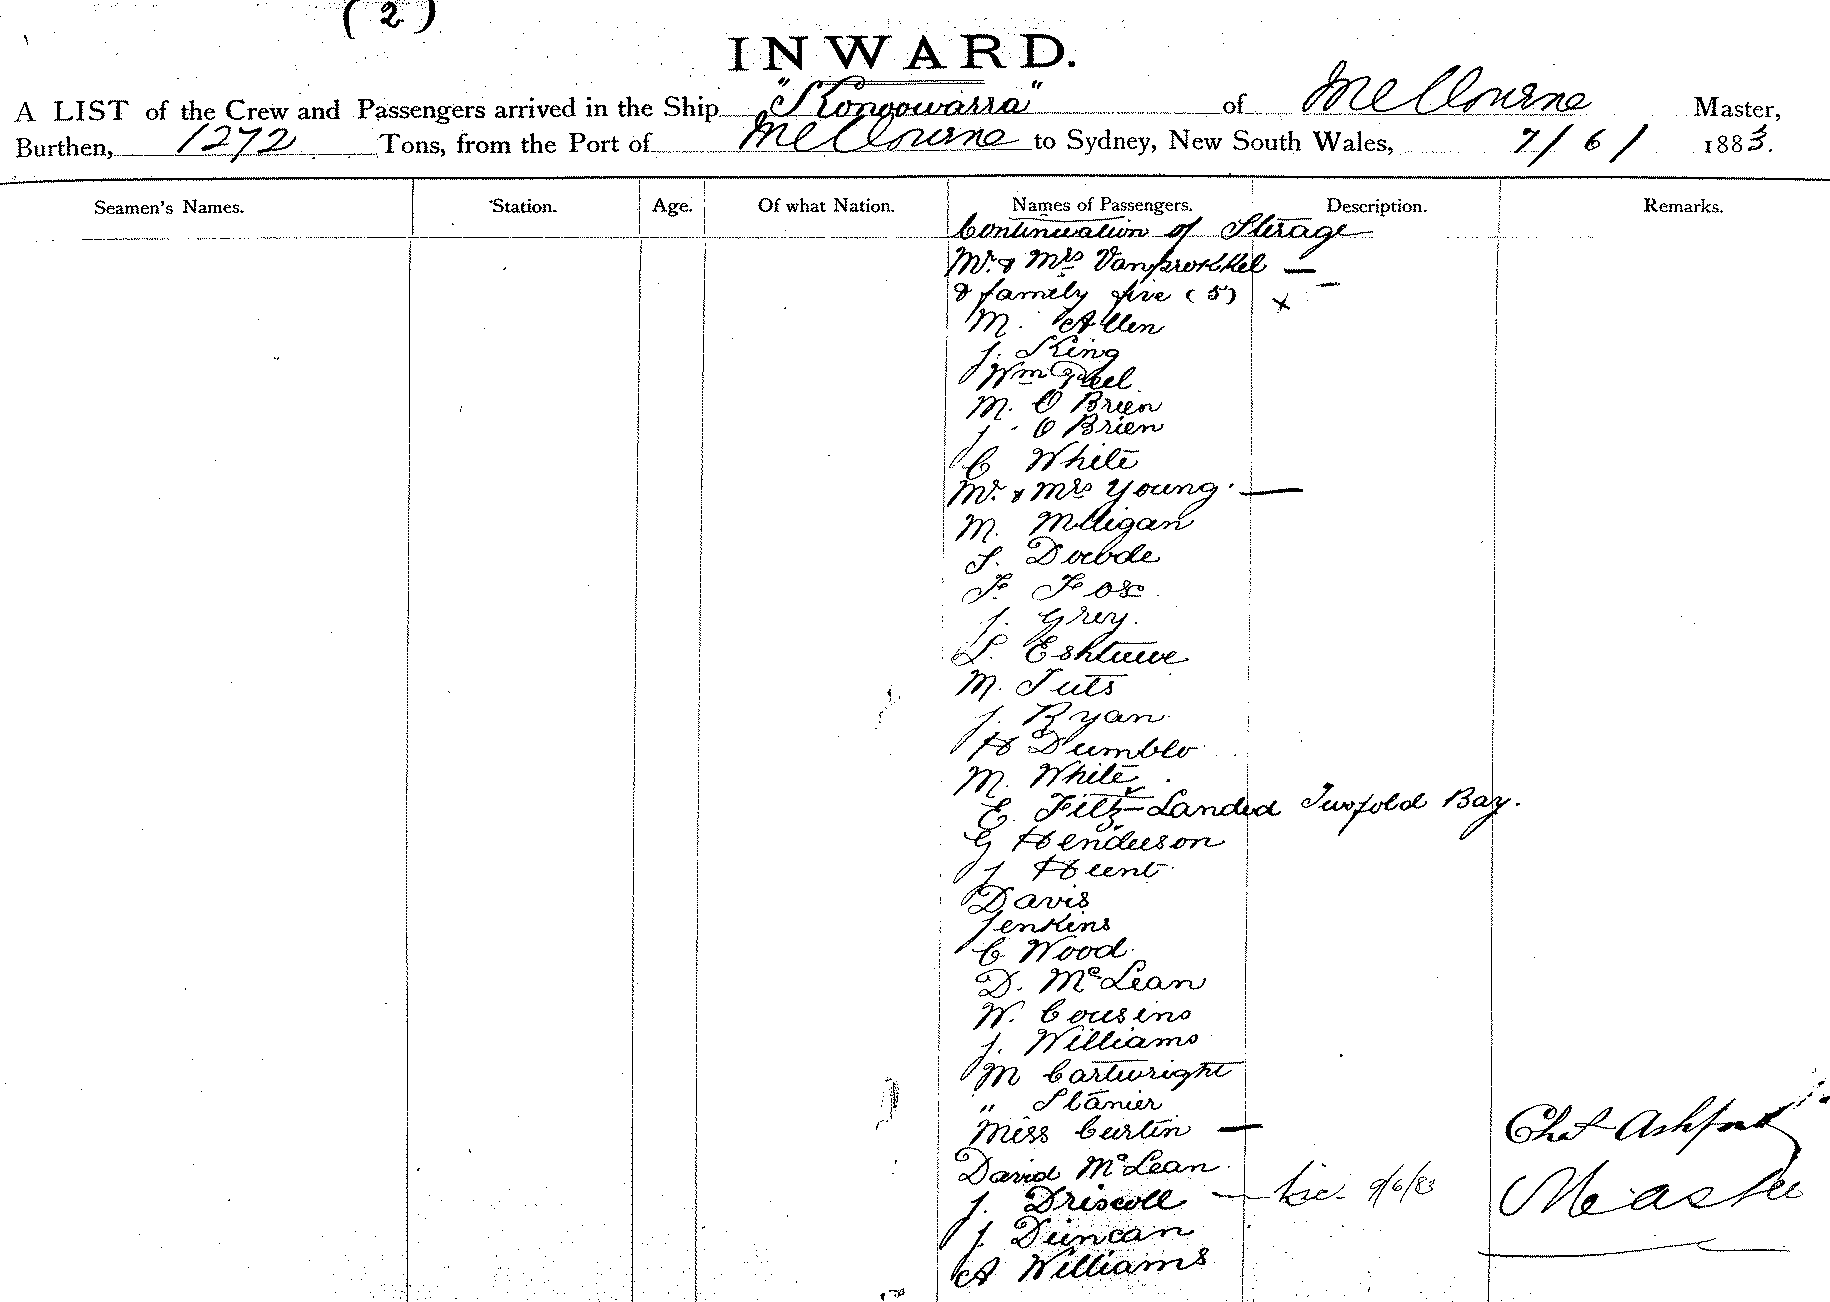 (2)
INWARD.
A LIST of the Crew and Passengers arrived in the Ship "Konoowarra" of Melbourne Master,
Burthen, 1272 Tons, from the Port of Melbourne to Sydney, New South Wales, 7/6/ 1883.
Seamen's Names. Station. Age. Of what Nation. Names of Passengers. Description. Remarks.
Continuation of Sterage
Mr. & Mrs Vanprokkel —
& family five (5) x —
M. Allen
J. King
Wm Peel
M. O Brien
J. O Brien
C White
Mr. & Mrs Young. —
M. Milligan
S.
F. Fox
J. Grey.
L.
M. Tuts
J. Ryan
H Dumblo
M. White
E. Fitz — Landed Twofold Bay.
G Henderson
J Hunt
Davis
Jenkins
C Wood
D. McLean
W. Cousins
J. Williams
M Cartwright
" Stanier
Miss Curtin —
David McLean
J. Driscoll — 9/6/83
J. Duncan
A Williams
Chas Ashford
Master